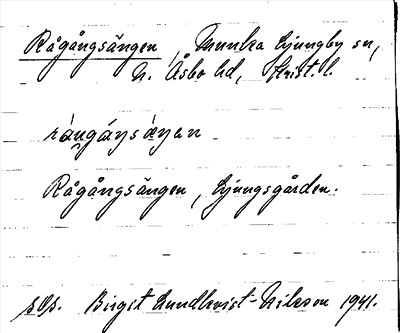 Rågångsängen, Munka Ljungby sn,
N. Åsbo hd, Krist. l.
rángáŋsäŋan
Rågångsängen, Ljungsgården.
sOp. Birgit Lundkvist-Nilsson 1941.